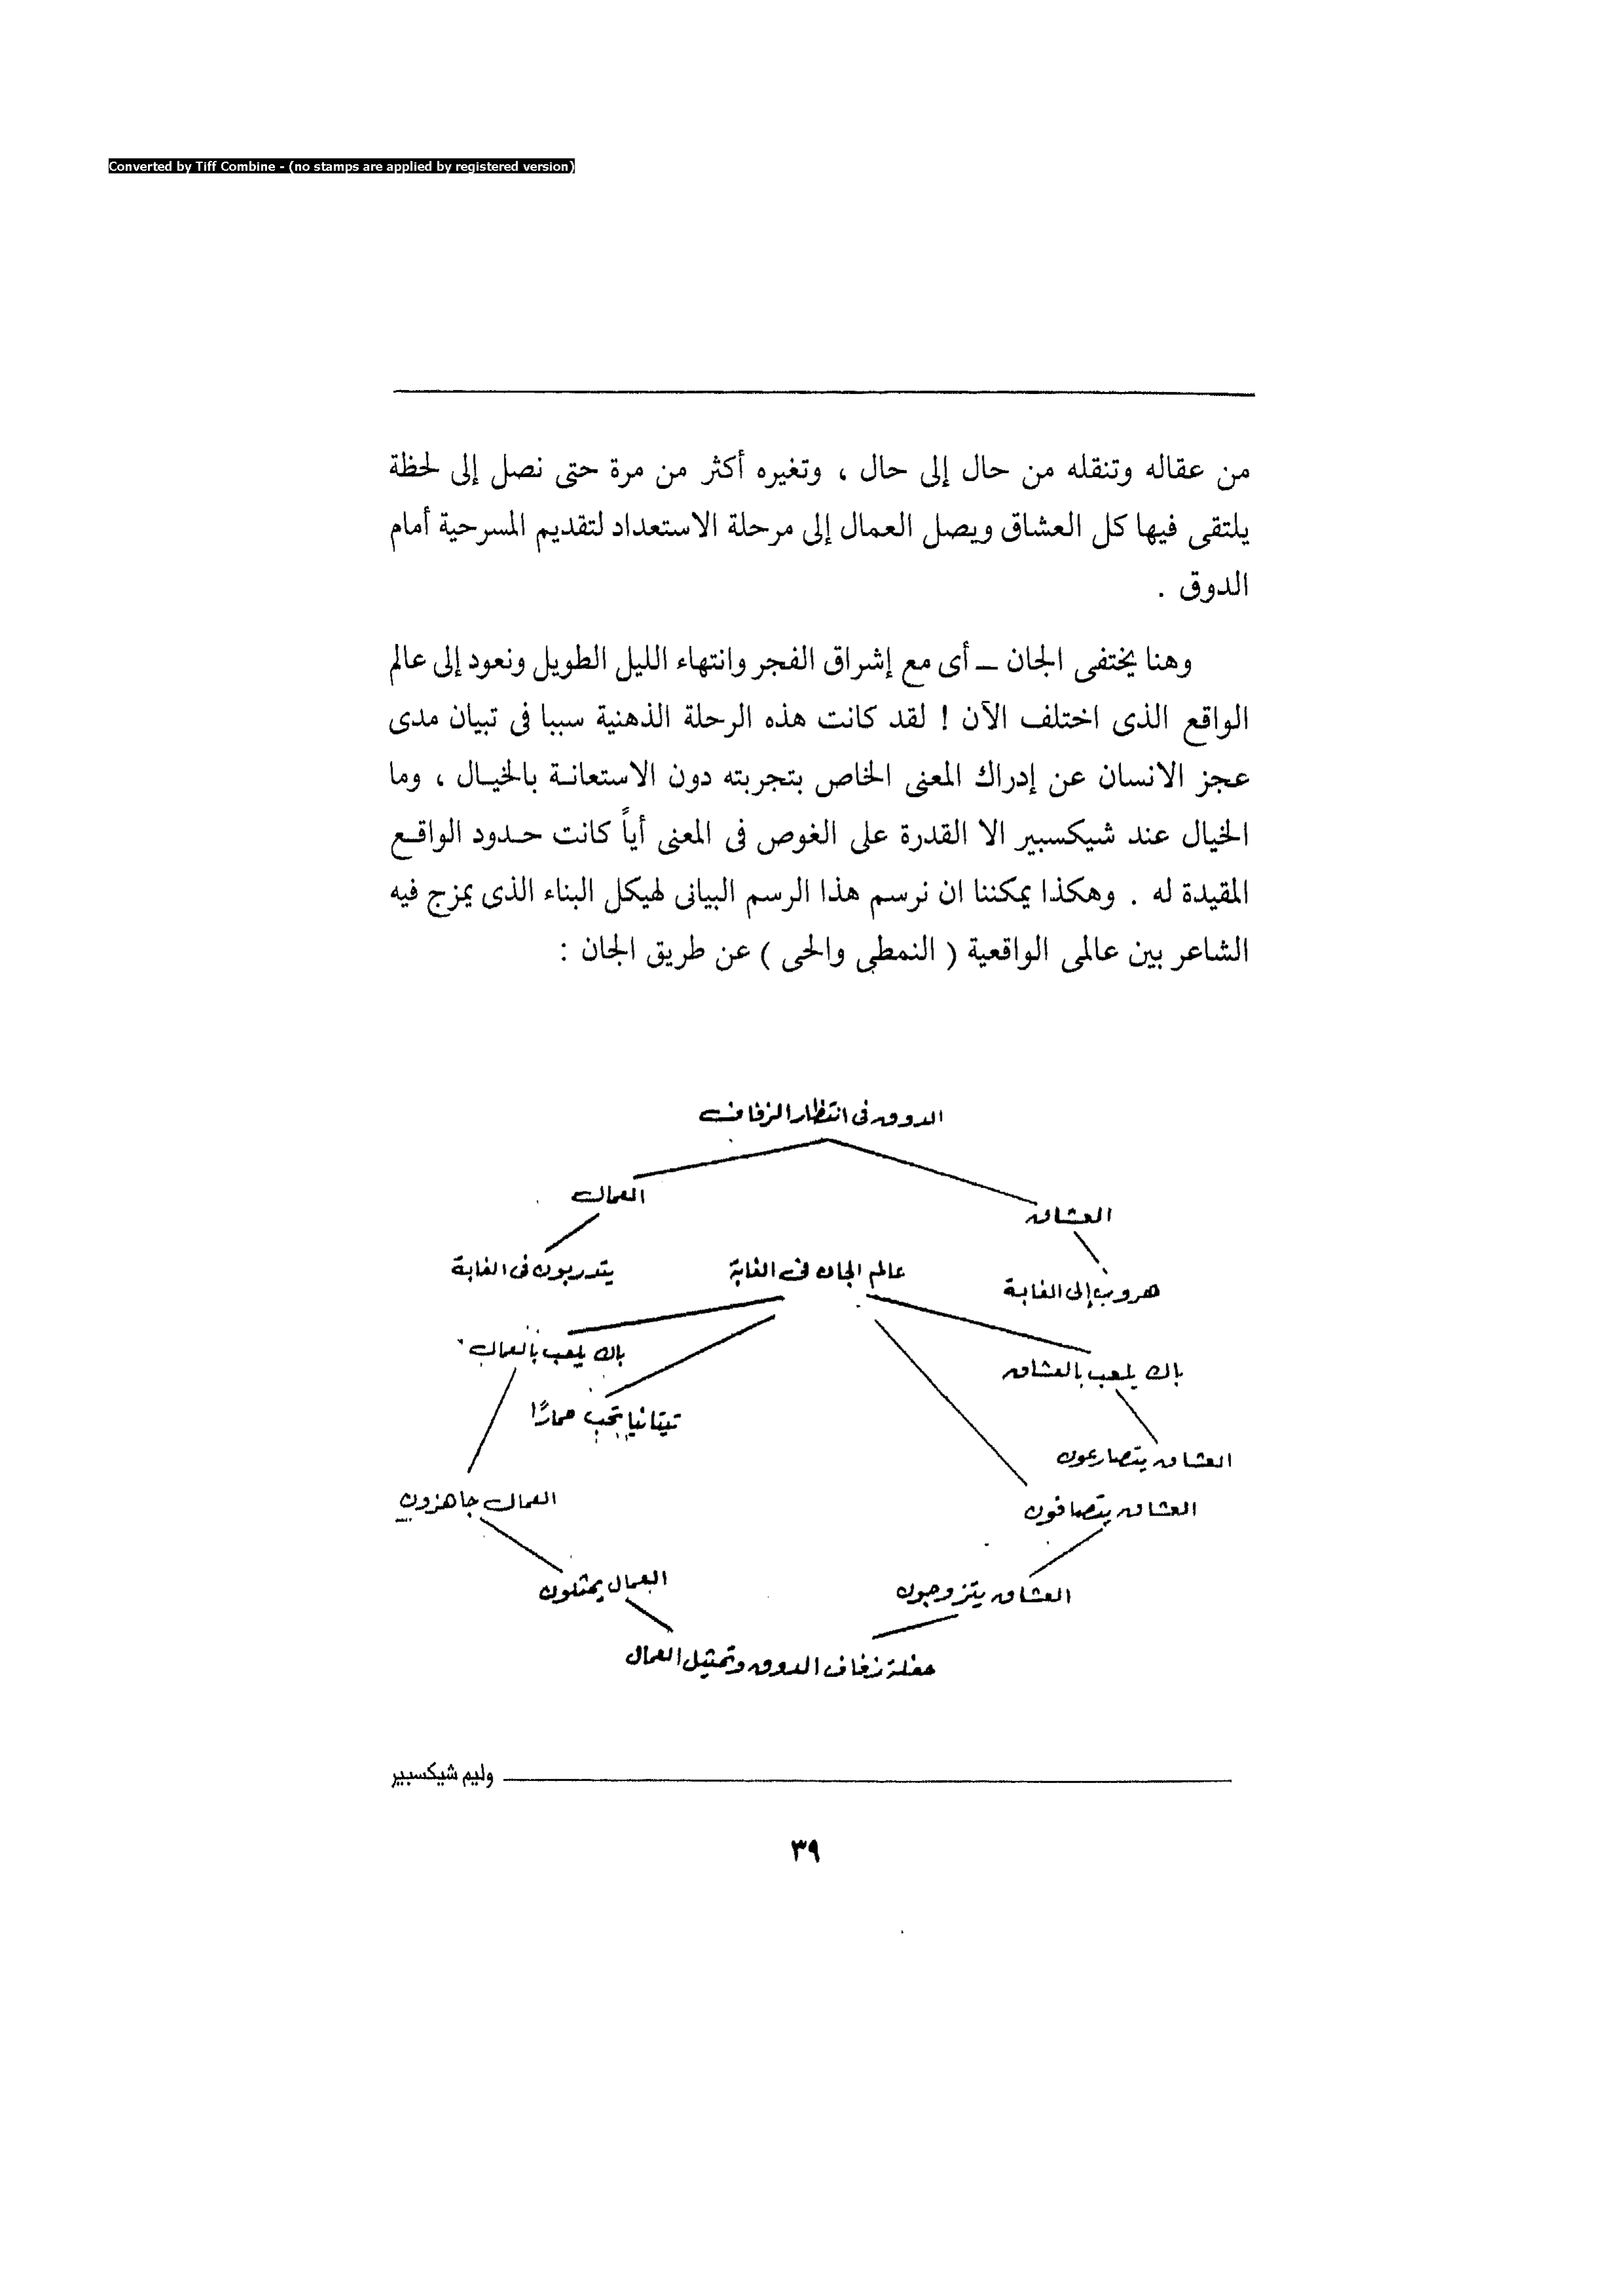 Converted by Tiff Combine - (no stamps are applied by registered version)
من عقاله وتنقله من حال إلى حال ، وتغيره أكثر من مرة حتى نصل إلى لحظة
يلتقى فيها كل العشاق ويصل العمال إلى مرحلة الاستعداد لتقديم المسرحية أمام
الدوق .
وهنا يختفى الجان ــ أى مع إشراق الفجر وانتهاء الليل الطويل ونعود إلى عالم
الواقع الذى اختلف الآن ! لقد كانت هذه الرحلة الذهنية سببا فى تبيان مدى
عجز الانسان عن إدراك المعنى الخاص بتجربته دون الاستعانة بالخيال ، وما
الخيال عند شيكسبير الا القدرة على الغوص فى المعنى أياً كانت حدود الواقع
المقيدة له . وهكذا يمكننا ان نرسم هذا الرسم البيانى لهيكل البناء الذى يمزج فيه
الشاعر بين عالمى الواقعية ( النمطى والحى ) عن طريق الجان :
الدوق فى انتظار الزفاف
العمال
العشاق
عالم الجان فى الغابة
يتدربون فى الغابة
هروب إلى الغابة
باك يلعب بالعمال
باك يلعب بالعشاق
تيتانيا تحب حمارًا
العشاق يتصارعون
العمال جاهزون
العشاق يتصافون
العمال يمثلون
العشاق يتزوجون
حفلة زفاف الدوق وتمثيل العمال
وليم شيكسبير
٣٩